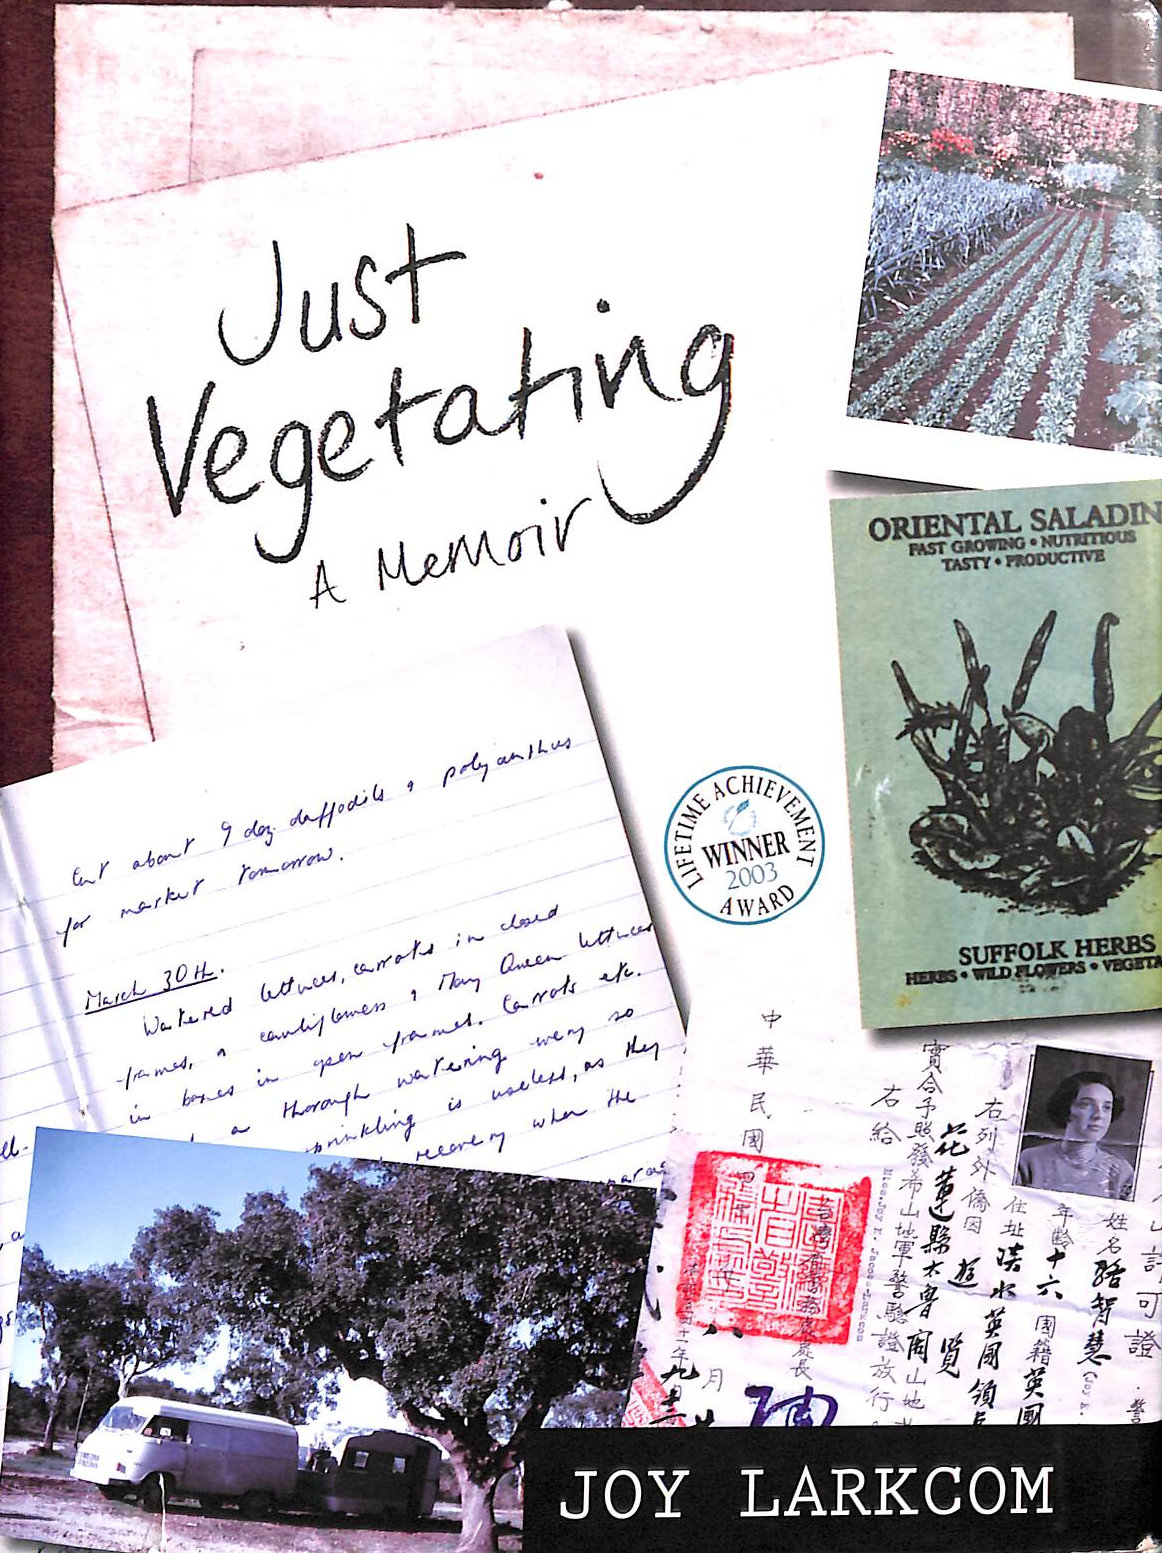 Just
Vegetating
A Memoir
ORIENTAL SALADIN
FAST GROWING • NUTRITIOUS
TASTY • PRODUCTIVE
SUFFOLK HERBS
HERBS • WILD FLOWERS • VEGETA
LIFETIME ACHIEVEMENT
WINNER
2003
AWARD
Cut about 9 doz daffodils & polyanthus
for market tomorrow.
March 30th.
Watered lettuces, carrots in closed
frames, & cauliflowers & May Queen lettuces
in boxes in open frames. Carrots etc.
a thorough watering every so
sprinkling is useless, as they
recovery when the
中華民國
右給
寶合予照發希山地軍警驗證放行
花蓮縣太魯閣山地
右列外僑因遊覽
住址淡水英國領
年齡十六國籍英國
姓名駱智慧
許可證
處長
八月
JOY LARKCOM